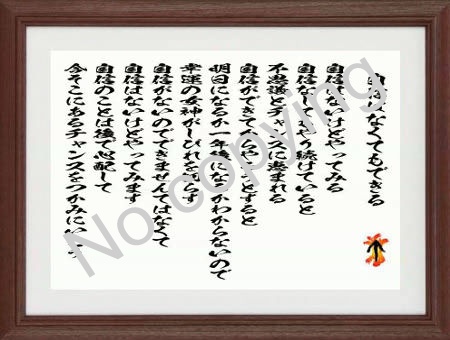 自信はなくてもできる
自信はないけどやってみる
自信なしでもやり続けていると
不思議とチャンスに恵まれる
自信ができてからやろうとすると
明日になるか一年後になるかわからないので
幸運の女神がしびれを切らす
自信がないのでできませんではなくて
自信はないけどやってみます
自信のことは後で心配して
今そこにあるチャンスをつかみにいこう
No copying